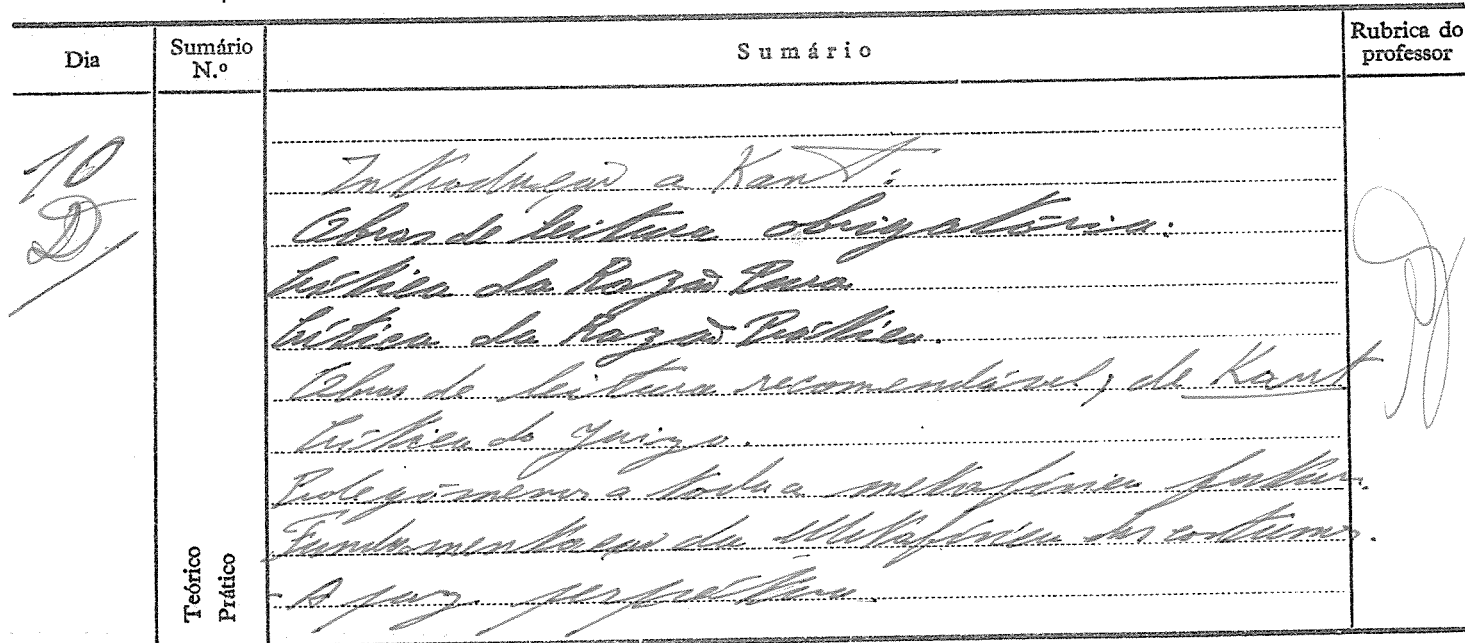 Dia
Sumário N.º
Sumário
Rubrica do professor
10
D
Introdução a Kant:
Obras de leitura obrigatória:
Crítica da Razão Pura
Crítica da Razão Prática.
Obras de leitura recomendável, de Kant
Crítica do Juízo.
Prolegómenos a toda a metafísica futura.
Fundamentação da Metafísica dos costumes.
- A paz perpétua.
Teórico
Prático